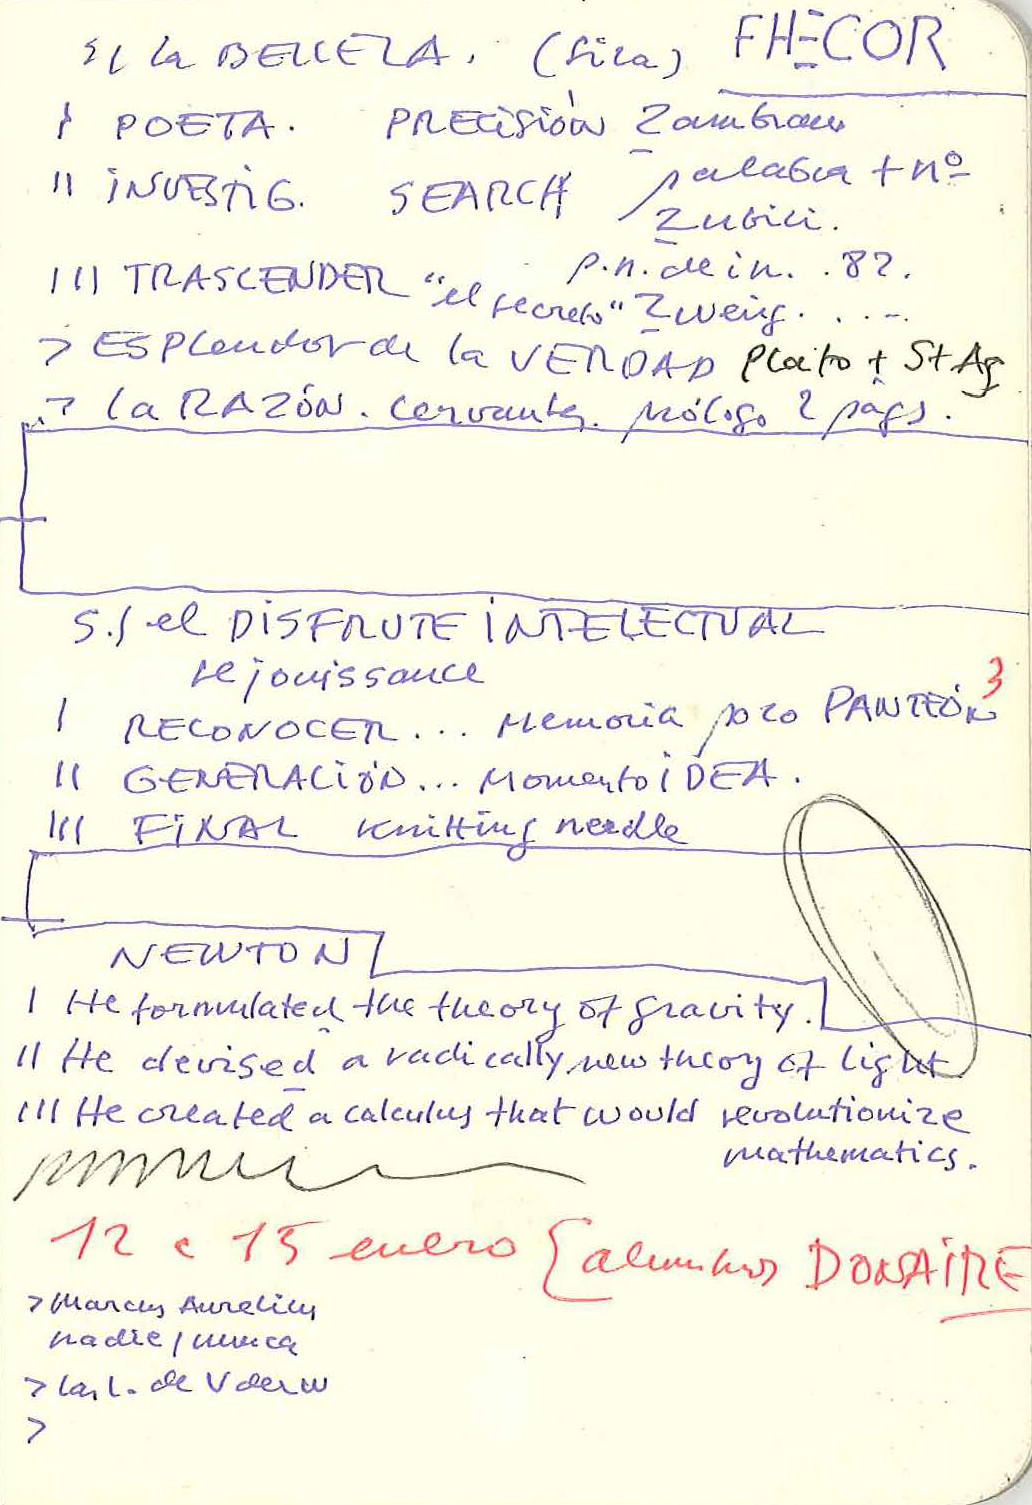 S/ la BELLEZA. (Lira) FHECOR
I POETA. PRECISIÓN Zambrano
II INVESTIG. SEARCH palabra + nº
Zubiri.
III TRASCENDER p.n. de in. . 82.
"el secreto" Zweig. . . --
> ESPlendor de la VERDAD Plato + St Ag
> la RAZÓN. Cervantes. prólogo 2 págs.
S./ el DISFRUTE INTELECTUAL
rejouissance
I RECONOCER... Memoria pozo PANTEÓN 3
II GENERACIÓN... Momento IDEA.
III FINAL knitting needle
NEWTON
I He formulated the theory of gravity.
II He devised a radically new theory of light
III He created a calculus that would revolutionize
mathematics.
12 a 15 enero { alumnos DONAIRE
> Marcus Aurelius
nadie / nunca
> de
>